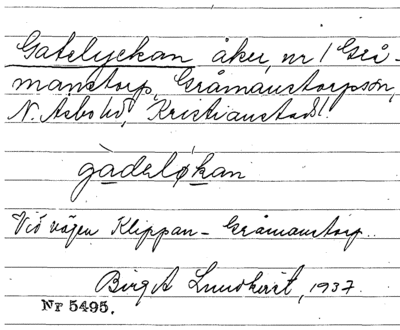 Gatelyckan åker, nr 1 Grå-
manstorp, Gråmanstorps sn,
N. Åsbo hd, Kristianstads l.
gàdeløkan
Vid vägen Klippan - Gråmanstorp.
Birgit Lundkvist, 1937.
Nr 5495.